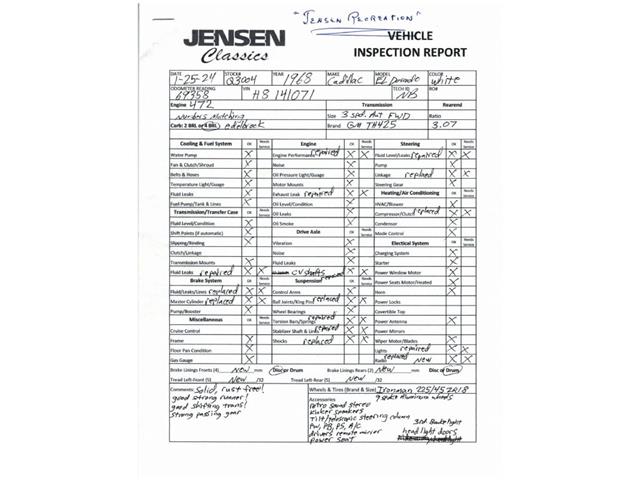 "JENSEN RECREATION"
JENSEN
Classics
VEHICLE
INSPECTION REPORT
DATE 1-25-24 STOCK# Q3004 YEAR 1968 MAKE Cadillac MODEL El Dorado COLOR white
ODOMETER READING 69358 VIN H8 141071 TECH ID NB RO#
Engine 472 Transmission Rearend
Numbers Matching Size 3 spd. Aut FWD Ratio
Carb: 2 BRL or 4 BRL edelbrock Brand GM TH425 3.07
Cooling & Fuel System OK Needs Service Engine OK Needs Service Steering OK Needs Service
Water Pump X Engine Performance repaired X X Fluid Level/Leaks repaired X X
Fan & Clutch/Shroud X Noise X Pump X
Belts & Hoses X Oil Pressure Light/Guage X Linkage replaced X X
Temperature Light/Guage X Motor Mounts X Steering Gear X
Fluid Leaks X Exhaust Leak repaired X X Heating/Air Conditioning OK Needs Service
Fuel Pump/Tank & Lines X Oil Level/Condition X HVAC/Blower X
Transmission/Transfer Case OK Needs Service Oil Leaks X Compressor/Clutch replaced X X
Fluid Level/Condition X Oil Smoke X Condenser X
Shift Points (if automatic) X Drive Axle OK Needs Service Mode Control X
Slipping/Binding X Vibration X Electrical System OK Needs Service
Clutch/Linkage Noise X Charging System X
Transmission Mounts X Fluid Leaks X Starter X
Fluid Leaks repaired X X CV shafts replaced X X Power Window Motor X
Brake System OK Needs Service Suspension OK Needs Service Power Seats Motor/Heated X
Fluid/Leaks/Lines replaced X X Control Arms X Horn X
Master Cylinder replaced X X Ball Joints/King Pins replaced X X Power Locks X
Pump/Booster X Wheel Bearings X Covertible Top
Miscellaneous OK Needs Service Torsion Bars/Springs repaired X X Power Antenna X
Cruise Control Stabilizer Shaft & Links repaired X X Power Mirrors X
Frame X Shocks replaced X X Wiper Motor/Blades X
Floor Pan Condition X Lights repaired X X
Gas Gauge X Radio replaced New X X
Brake Linings Fronts (4) New mm Disc or Drum Brake Linings Rears (2) New mm Disc or Drum
Tread Left-Front (5) New /32 Tread Left-Rear (5) New /32
Comments: Solid, rust free! Wheels & Tires (Brand & Size) Ironman 225/45ZR18
good strong runner!
good shifting trans!
strong passing gear
Accessories
retro sound stereo
kicker speakers
Tilt/telescopic steering column
PW, PB, PS, A/C
drivers remote mirror
power seat
3rd Brake light
headlight doors